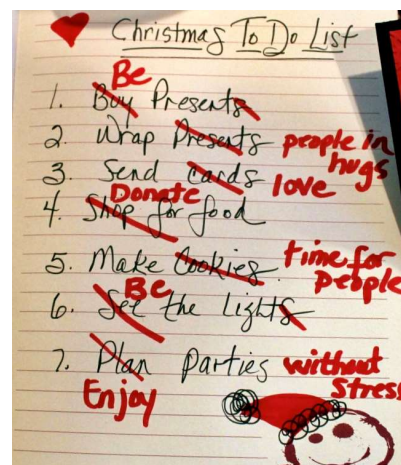 Christmas To Do List
Be
1. Buy Presents
2. Wrap Presents people in hugs
3. Send Cards love
Donate
4. Shop for food
5. Make Cookies time for people
Be
6. See the Lights
7. Plan Parties without Stress
Enjoy